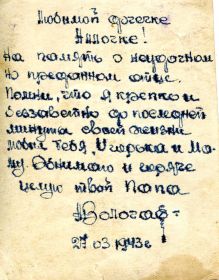 Любимой дочечке
Ниночке!
На память о неудачном
но преданном отце.
Помни, что я крепко и
беззаветно до последней
минуты своей жизни
любил тебя, Игорька и Ма-
му. Обнимаю и горячо
целую твой Папа
27 03 1943 г